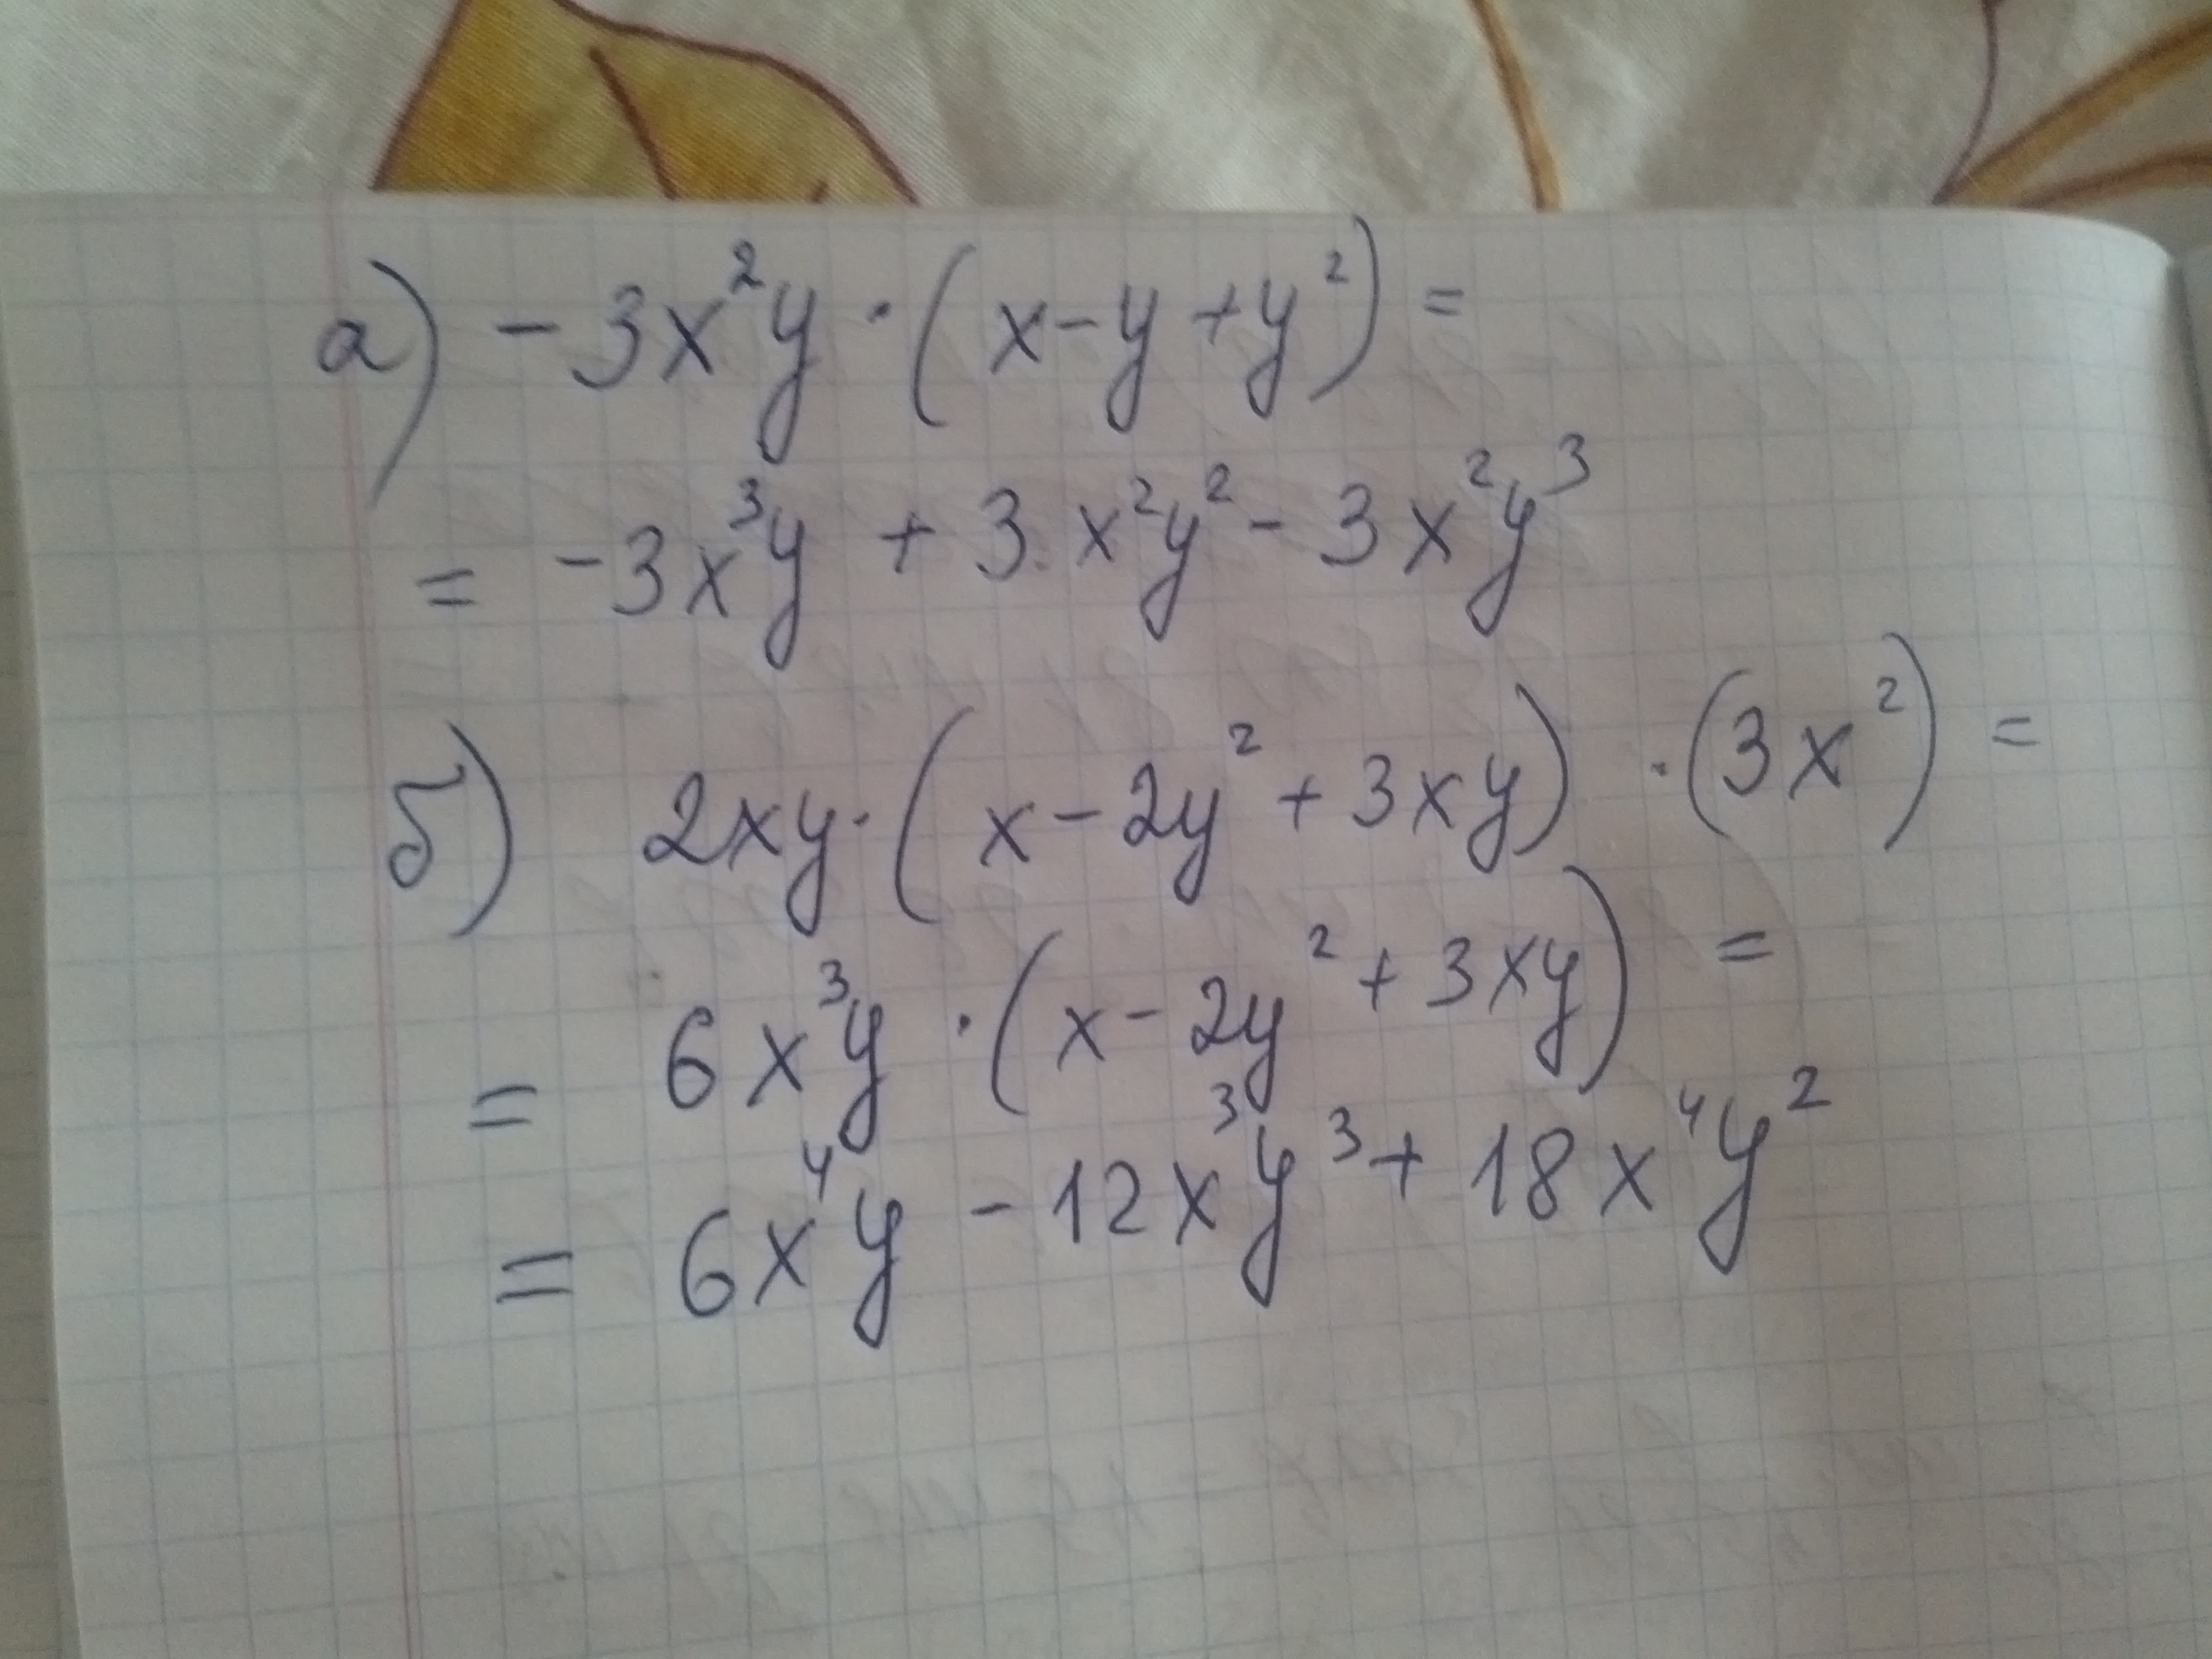 а) -3x²y·(x-y+y²)=
= -3x³y + 3x²y² - 3x²y³
б) 2xy·(x-2y²+3xy)·(3x²)=
= 6x³y·(x-2y²+3xy)=
= 6x⁴y - 12x³y³ + 18x⁴y²